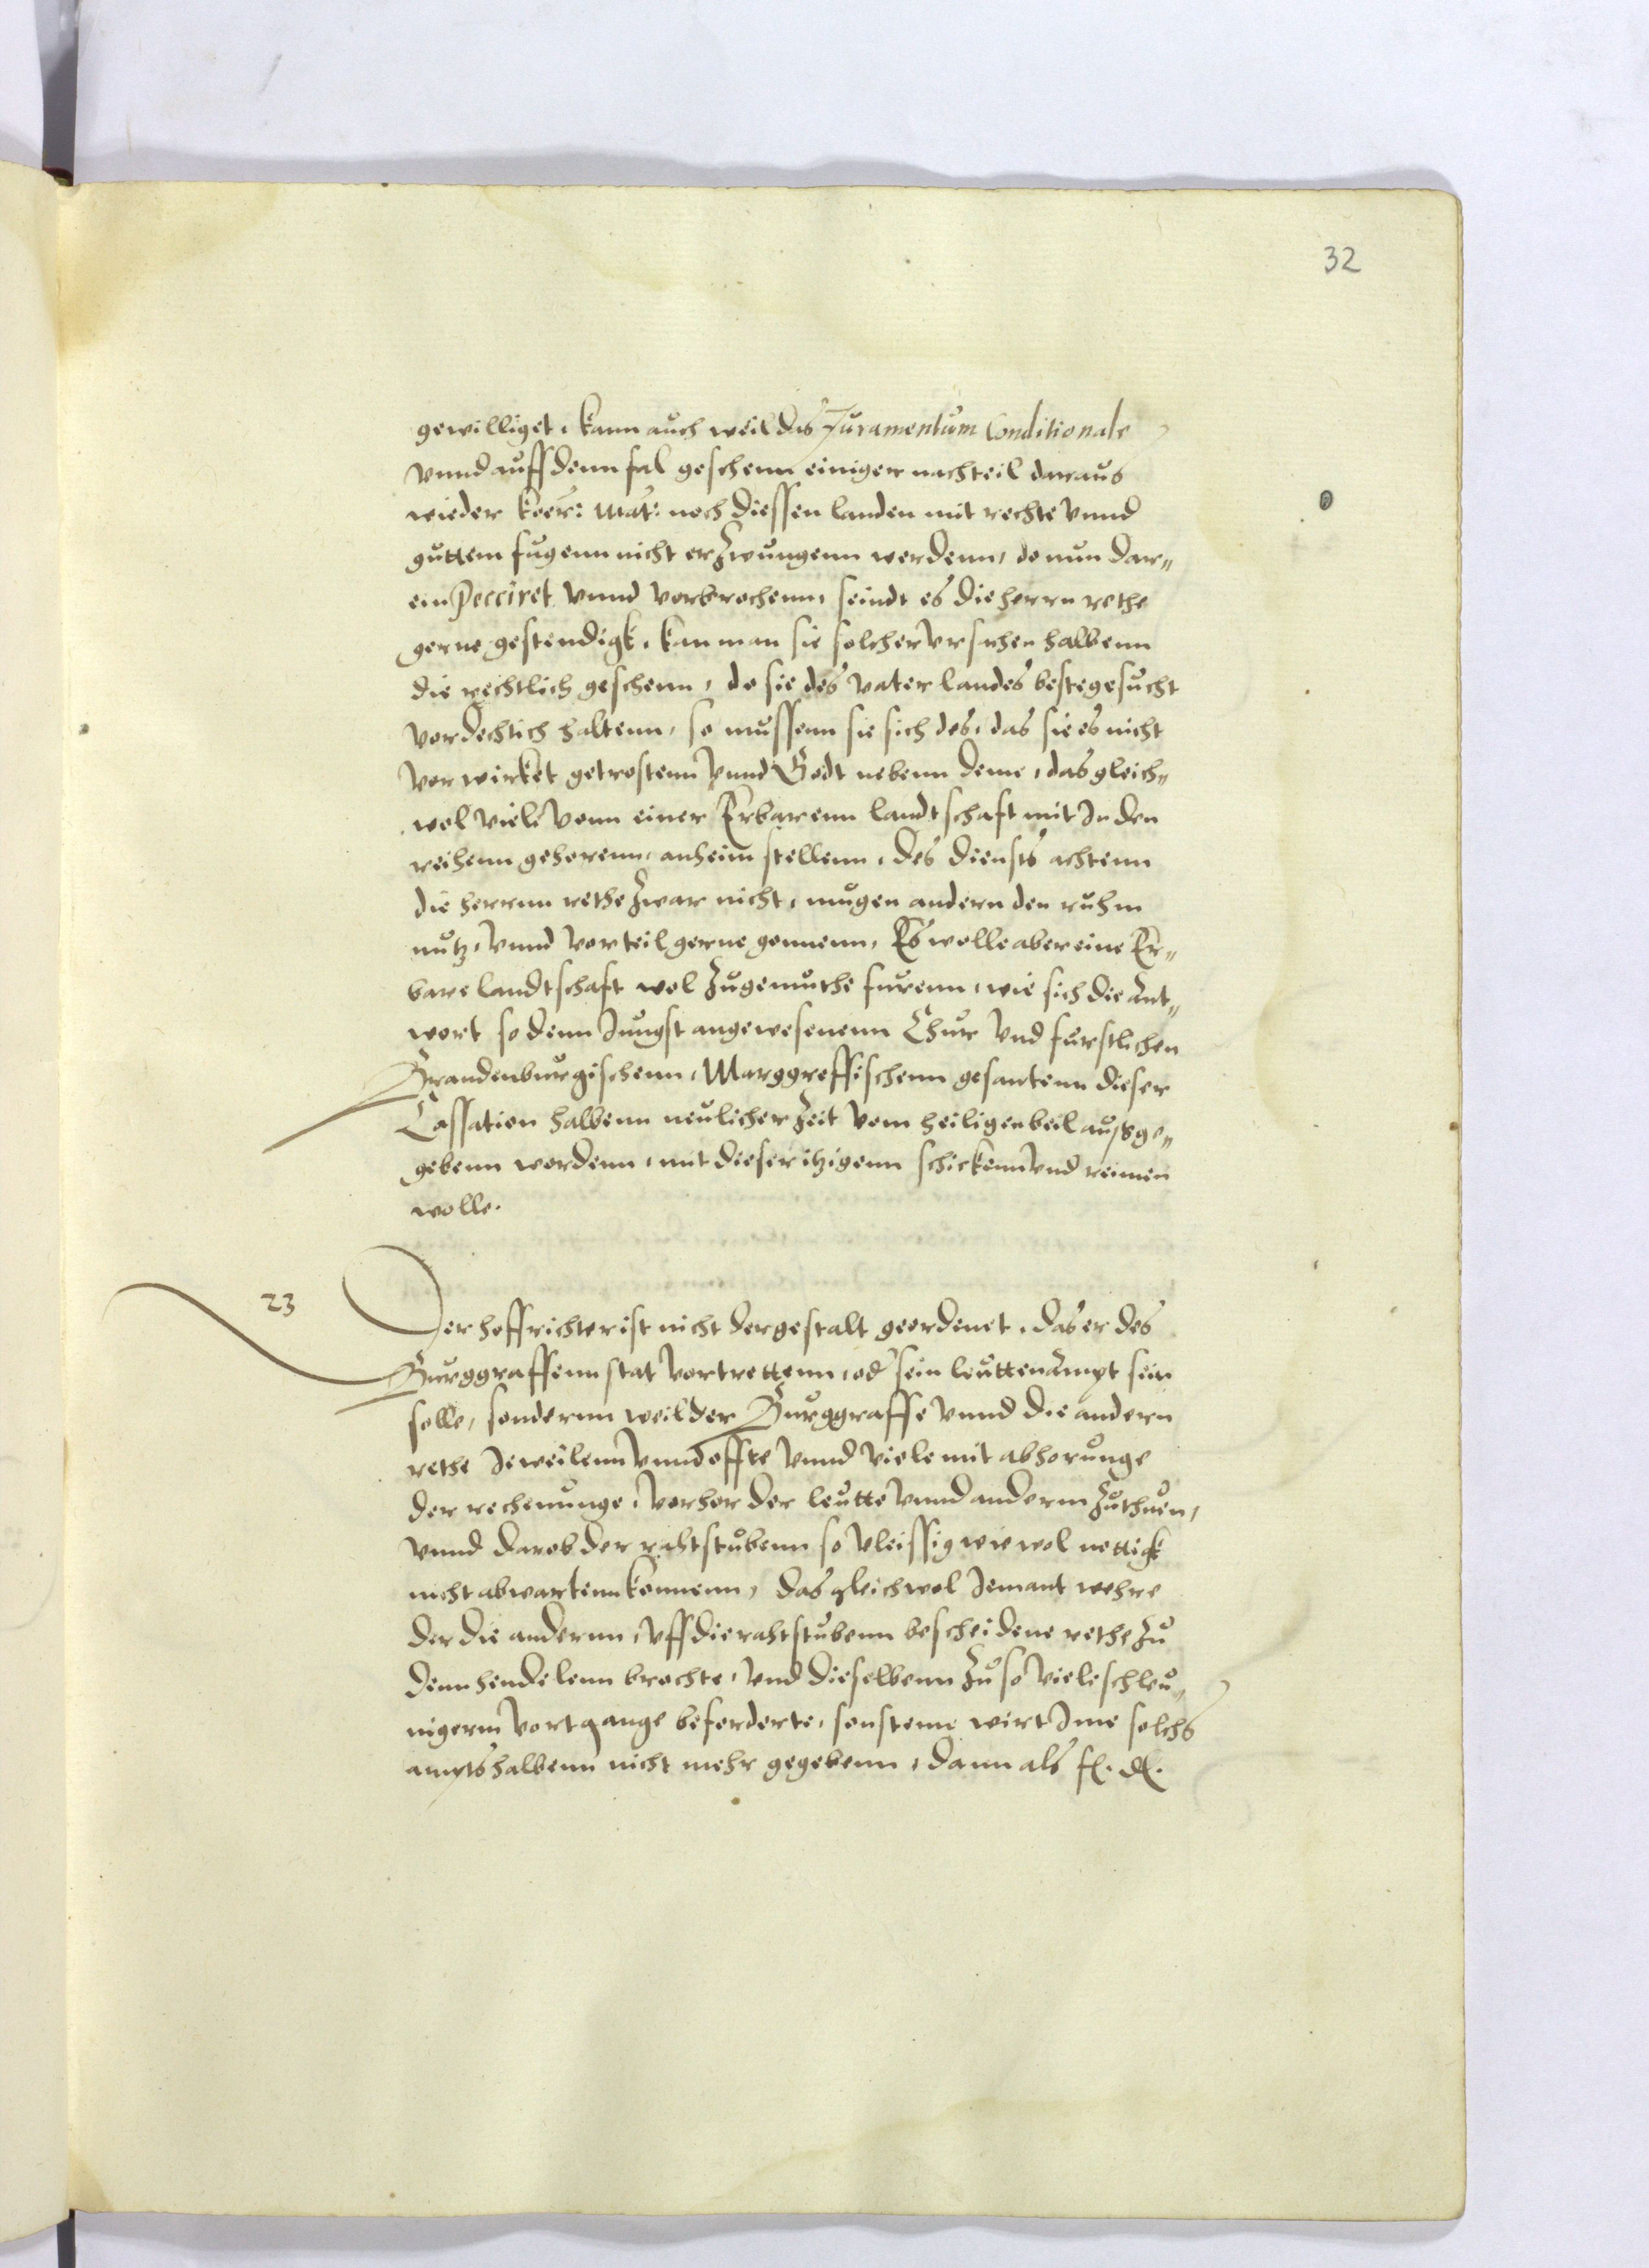 32
gewilliget, kann auch weil das Juramentum Conditionale
vnnd auff denn fal geschenn einiger nachteil daraus
wieder koer: Mat: noch diessen landen mit rechte vnnd
guttem fugenn nicht erzwungenn werdenn, do nun dar„
ein pecciret vnnd vorbrochenn, seindt es die herrn rethe
gerne gestendigk, kan man sie solcher vrsachen halbenn
die rechtlich geschenn, do sie des vaterlandes beste gesucht
vordechtich haltenn, so mussenn sie sich des, das sie es nicht
vorwirket getrostenn vnnd Godt nebenn deme, das gleich„
wol viele vonn einer Erbarenn landtschaft mit Jn den
reihenn gehorenn, anheim stellenn, des diensts achtenn
die herrnn rethe zwar nicht, mugen andern den ruhm
nutz, vnnd vorteil gerne gonnenn, Es wolle aber eine Er„
bare landtschaft wol zugemuthe furenn, wie sich die Ant„
wort so denn Jungst angewesenenn Chur vnd furstlichen
Brandenburgischenn, Marggreffischenn gesantenn dieser
Cassation halbenn neulicher Zeit vom heiligenbeil ausge„
gebenn wordenn, mit dieser itzigenn schickenn vnd reimen
wolle.
23
Der hoffrichter ist nicht dergestalt geordenet, das er des
Burggraffenn stat vortrettenn, od sein leuttenampt sein
solle, sondernn weil der Burggraffe vnnd die andern
rethe Jeweilenn vnnd offte vnnd viele mit abhorunge
der rechenunge, vorhor der leutte vnnd anderm zuthuen,
vnnd darob der rahtstubenn so vleissig wie wol nottigk
nicht abwartenn konnenn, das gleichwol Jemant wehre
der die andernn, vff die rahtstubenn bescheidene rethe zu
denn hendelenn brechte, vnd dieselbenn zu so viele schleu„
nigerm vortgange beforderte, sonstenn wirt Jme solchs
ampts halbenn nicht mehr gegebenn, dann als f. d.